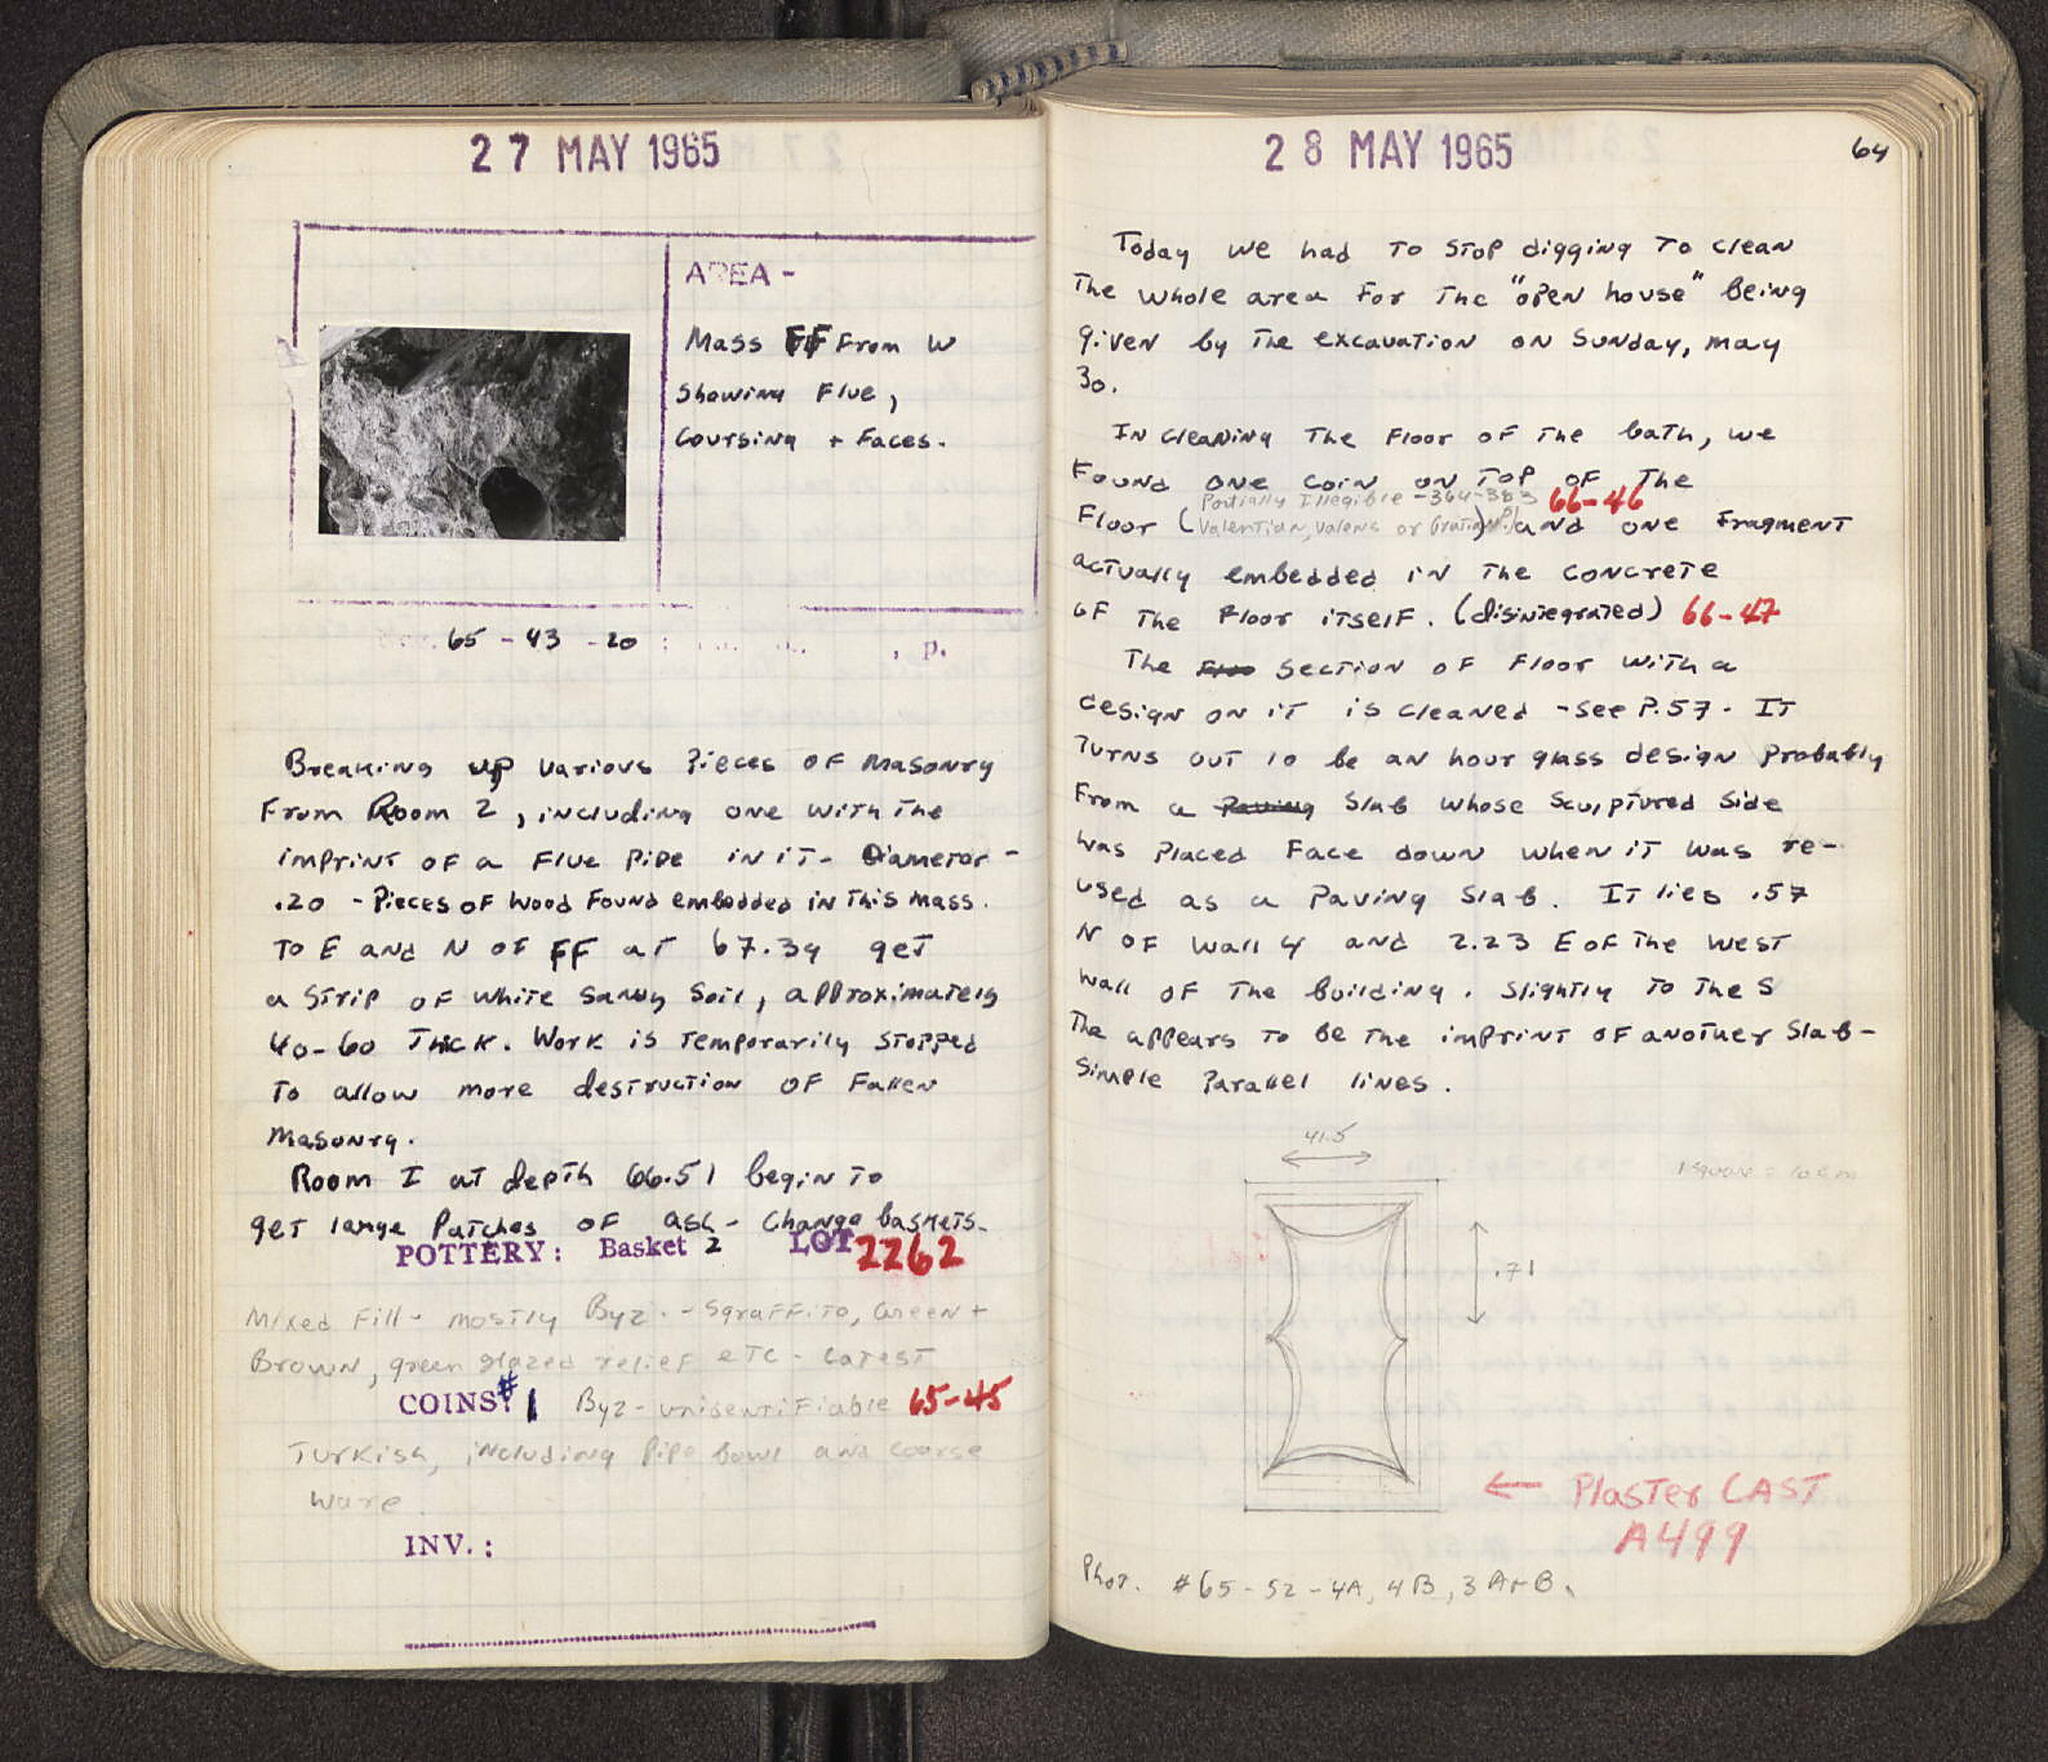 27 MAY 1965
AREA -
Mass FF From W
Showing Flue,
Coursing + Faces.
65 - 43 - 20 : , p.
Breaking up various Pieces of masonry
From Room 2, including one with the
imprint of a Flue Pipe in it - Diametor -
.20 - Pieces of Wood Found embedded in this mass.
To E and N of FF at 67.39 get
a strip of white sandy soil, approximately
40-60 Thick. Work is Temporarily stopped
to allow more destruction of Fallen
masonry.
Room I at depth 66.51 begin to
get large Patches of ash - Change baskets.
POTTERY: Basket 2 LOT 2262
Mixed Fill - mostly Byz. - Sgraffito, Green +
Brown, green glazed relief etc - Latest
COINS: #1 Byz - unidentifiable 65-45
Turkish, including Pipe bowl and coarse
ware
INV.:
28 MAY 1965
64
Today we had to stop digging to clean
the whole area for the "open house" being
given by the excavation on Sunday, may
30.
In cleaning the Floor of the bath, we
Found one coin on top of the
Partially Illegible - 364-383 66-46
Floor (Valentian, Valens or Gratian) and one Fragment
actually embedded in the concrete
of the Floor itself. (disintegrated) 66-47
The section of Floor with a
design on it is cleaned - see P.57. It
turns out to be an hour glass design probably
From a Paving Slab whose sculptured side
was placed Face down when it was re-
used as a Paving Slab. It lies .57
N of Wall 4 and 2.23 E of the West
wall of the building. Slightly to the S
The appears to be the imprint of another slab -
simple Parallel lines.
41.5
1 square = 10 cm
.71
← Plaster CAST
A499
Phot. #65-52-4A, 4B, 3A+B.